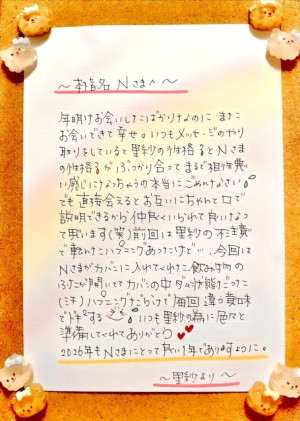 ～本指名Nさまへ～
年明けお会いしたばかりなのに また
お会いできて幸せ。いつもメッセージのやり
取りをしていると里紗の性格とNさま
の性格がぶつかり合ってまるで相性悪
い感じになっちゃうの本当にごめんなさい
でも直接会えるとお互いにちゃんと口で
説明できるから仲良くいられて良いなっ
て思います(笑)前回は里紗の不注意
で転んだハプニングあったけど…、今回は
Nさまがカバンに入れてくれた飲み物の
ふたが開いてて カバンの中ダム状態だった
(ミチ)ハプニングだらけで毎回違う意味
でドキドキする いつも里紗の為に色々と
準備してくれてありがとう
2026年もNさまにとって良い1年でありますように。
～里紗より～